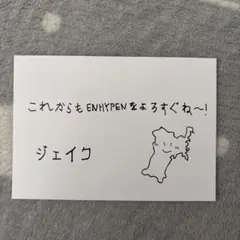 これからもENHYPENをよろすぐね〜!
ジェイク